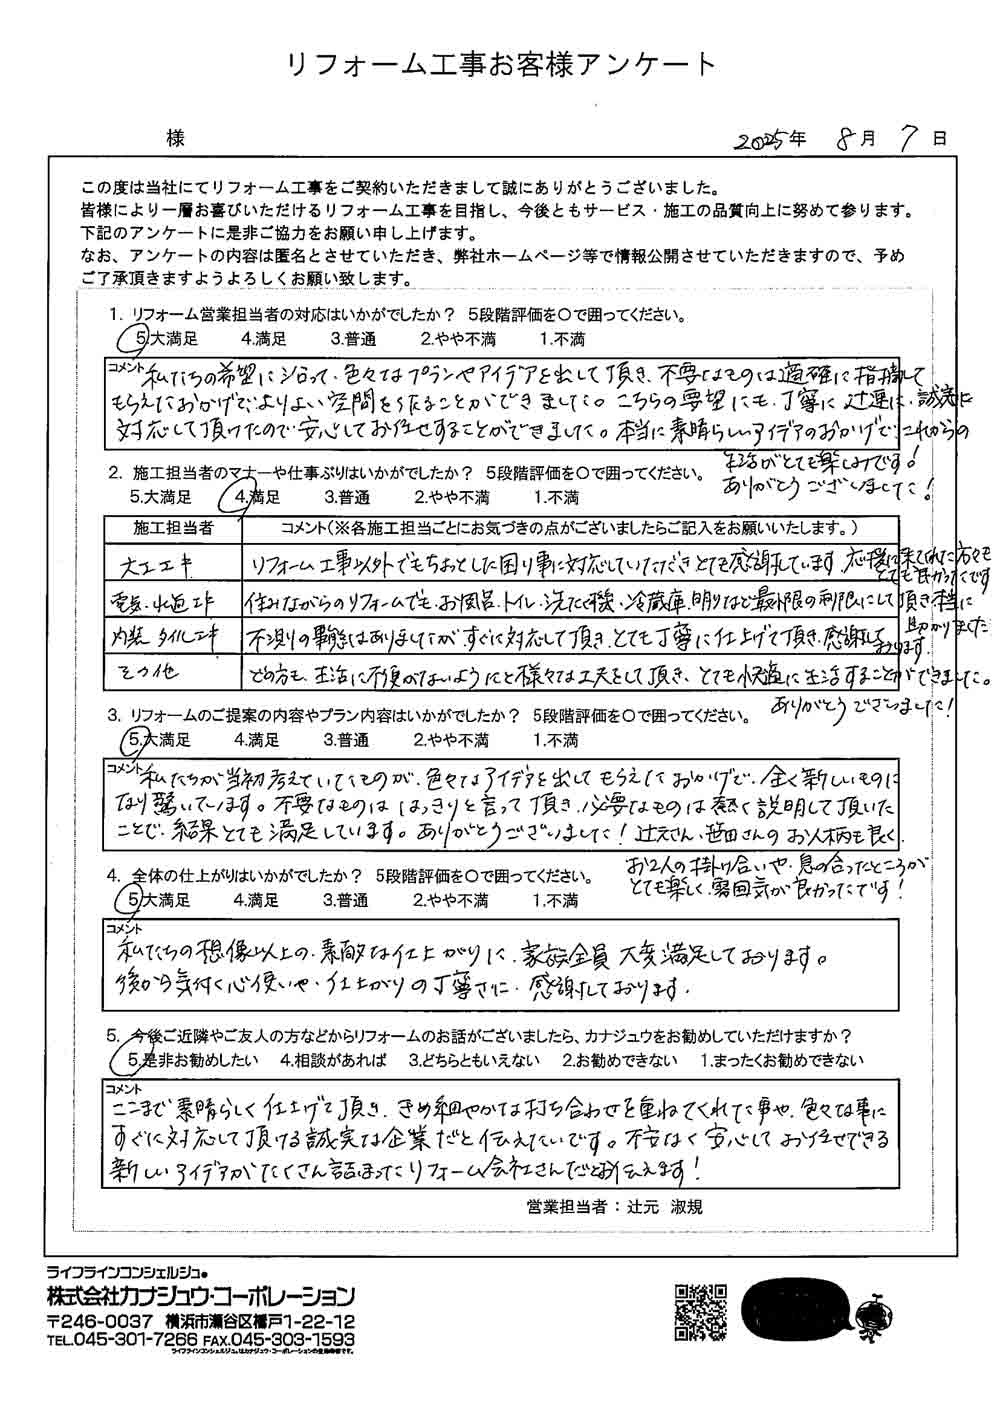 リフォーム工事お客様アンケート
様 2025年 8月 7日
この度は当社にてリフォーム工事をご契約いただきまして誠にありがとうございました。
皆様により一層お喜びいただけるリフォーム工事を目指し、今後ともサービス・施工の品質向上に努めて参ります。
下記のアンケートに是非ご協力をお願い申し上げます。
なお、アンケートの内容は匿名とさせていただき、弊社ホームページ等で情報公開させていただきますので、予め
ご了承頂きますようよろしくお願い致します。
1. リフォーム営業担当者の対応はいかがでしたか？ 5段階評価を○で囲ってください。
5.大満足 4.満足 3.普通 2.やや不満 1.不満
コメント
私たちの希望に沿って、色々なプランやアイデアを出して頂き、不要なものは適確に指摘して
もらえたおかげで、よりよい空間を作ることができました。こちらの要望にも、丁寧に迅速に、誠実に
対応して頂けたので安心してお任せすることができました。本当に素晴らしいアイデアのおかげで、これからの
生活がとても楽しみです！
ありがとうございました！
2. 施工担当者のマナーや仕事ぶりはいかがでしたか？ 5段階評価を○で囲ってください。
5.大満足 4.満足 3.普通 2.やや不満 1.不満
施工担当者 コメント（※各施工担当ごとにお気づきの点がございましたらご記入をお願いいたします。）
大工工事 リフォーム工事以外でもちょっとした困り事に対応していただきとても感謝しています。応援に来てくれた方々も
とても良かったです
電気・水道工事 住みながらのリフォームでも、お風呂、トイレ、洗たく機、冷蔵庫、明りなど最小限の制限にして頂き本当に
助かりました
内装 タイル工事 不測の事態はありましたが、すぐに対応して頂き、とても丁寧に仕上げて頂き、感謝して
おります。
その他 どの方も、生活に不便がないようにと様々な工夫をして頂き、とても快適に生活することができました。
ありがとうございました！
3. リフォームのご提案の内容やプラン内容はいかがでしたか？ 5段階評価を○で囲ってください。
5.大満足 4.満足 3.普通 2.やや不満 1.不満
コメント
私たちが当初考えていたものが、色々なアイデアを出してもらえたおかげで、全く新しいものに
なり驚いています。不要なものははっきりと言って頂き、必要なものは熱く説明して頂いた
ことで、結果とても満足しています。ありがとうございました！辻元さん、笹田さんのお人柄も良く、
お2人の掛け合いや、息の合ったところが
とても楽しく、雰囲気が良かったです！
4. 全体の仕上がりはいかがでしたか？ 5段階評価を○で囲ってください。
5.大満足 4.満足 3.普通 2.やや不満 1.不満
コメント
私たちの想像以上の、素敵な仕上がりに、家族全員大変満足しております。
後から気付く心使いや、仕上がりの丁寧さに、感謝しております。
5. 今後ご近隣やご友人の方などからリフォームのお話がございましたら、カナジュウをお勧めしていただけますか？
5.是非お勧めしたい 4.相談があれば 3.どちらともいえない 2.お勧めできない 1.まったくお勧めできない
コメント
ここまで素晴らしく仕上げて頂き、きめ細やかな打ち合わせを重ねてくれた事や、色々な事に
すぐに対応して頂ける誠実な企業だと伝えたいです。不安なく安心してお任せできる
新しいアイデアがたくさん詰まったリフォーム会社さんだとお伝えます！
営業担当者：辻元 淑規
ライフラインコンシェルジュ
株式会社カナジュウ・コーポレーション
〒246-0037 横浜市瀬谷区橋戸1-22-12
TEL.045-301-7266 FAX.045-303-1593
ライフラインコンシェルジュはカナジュウ・コーポレーションの登録商標です。